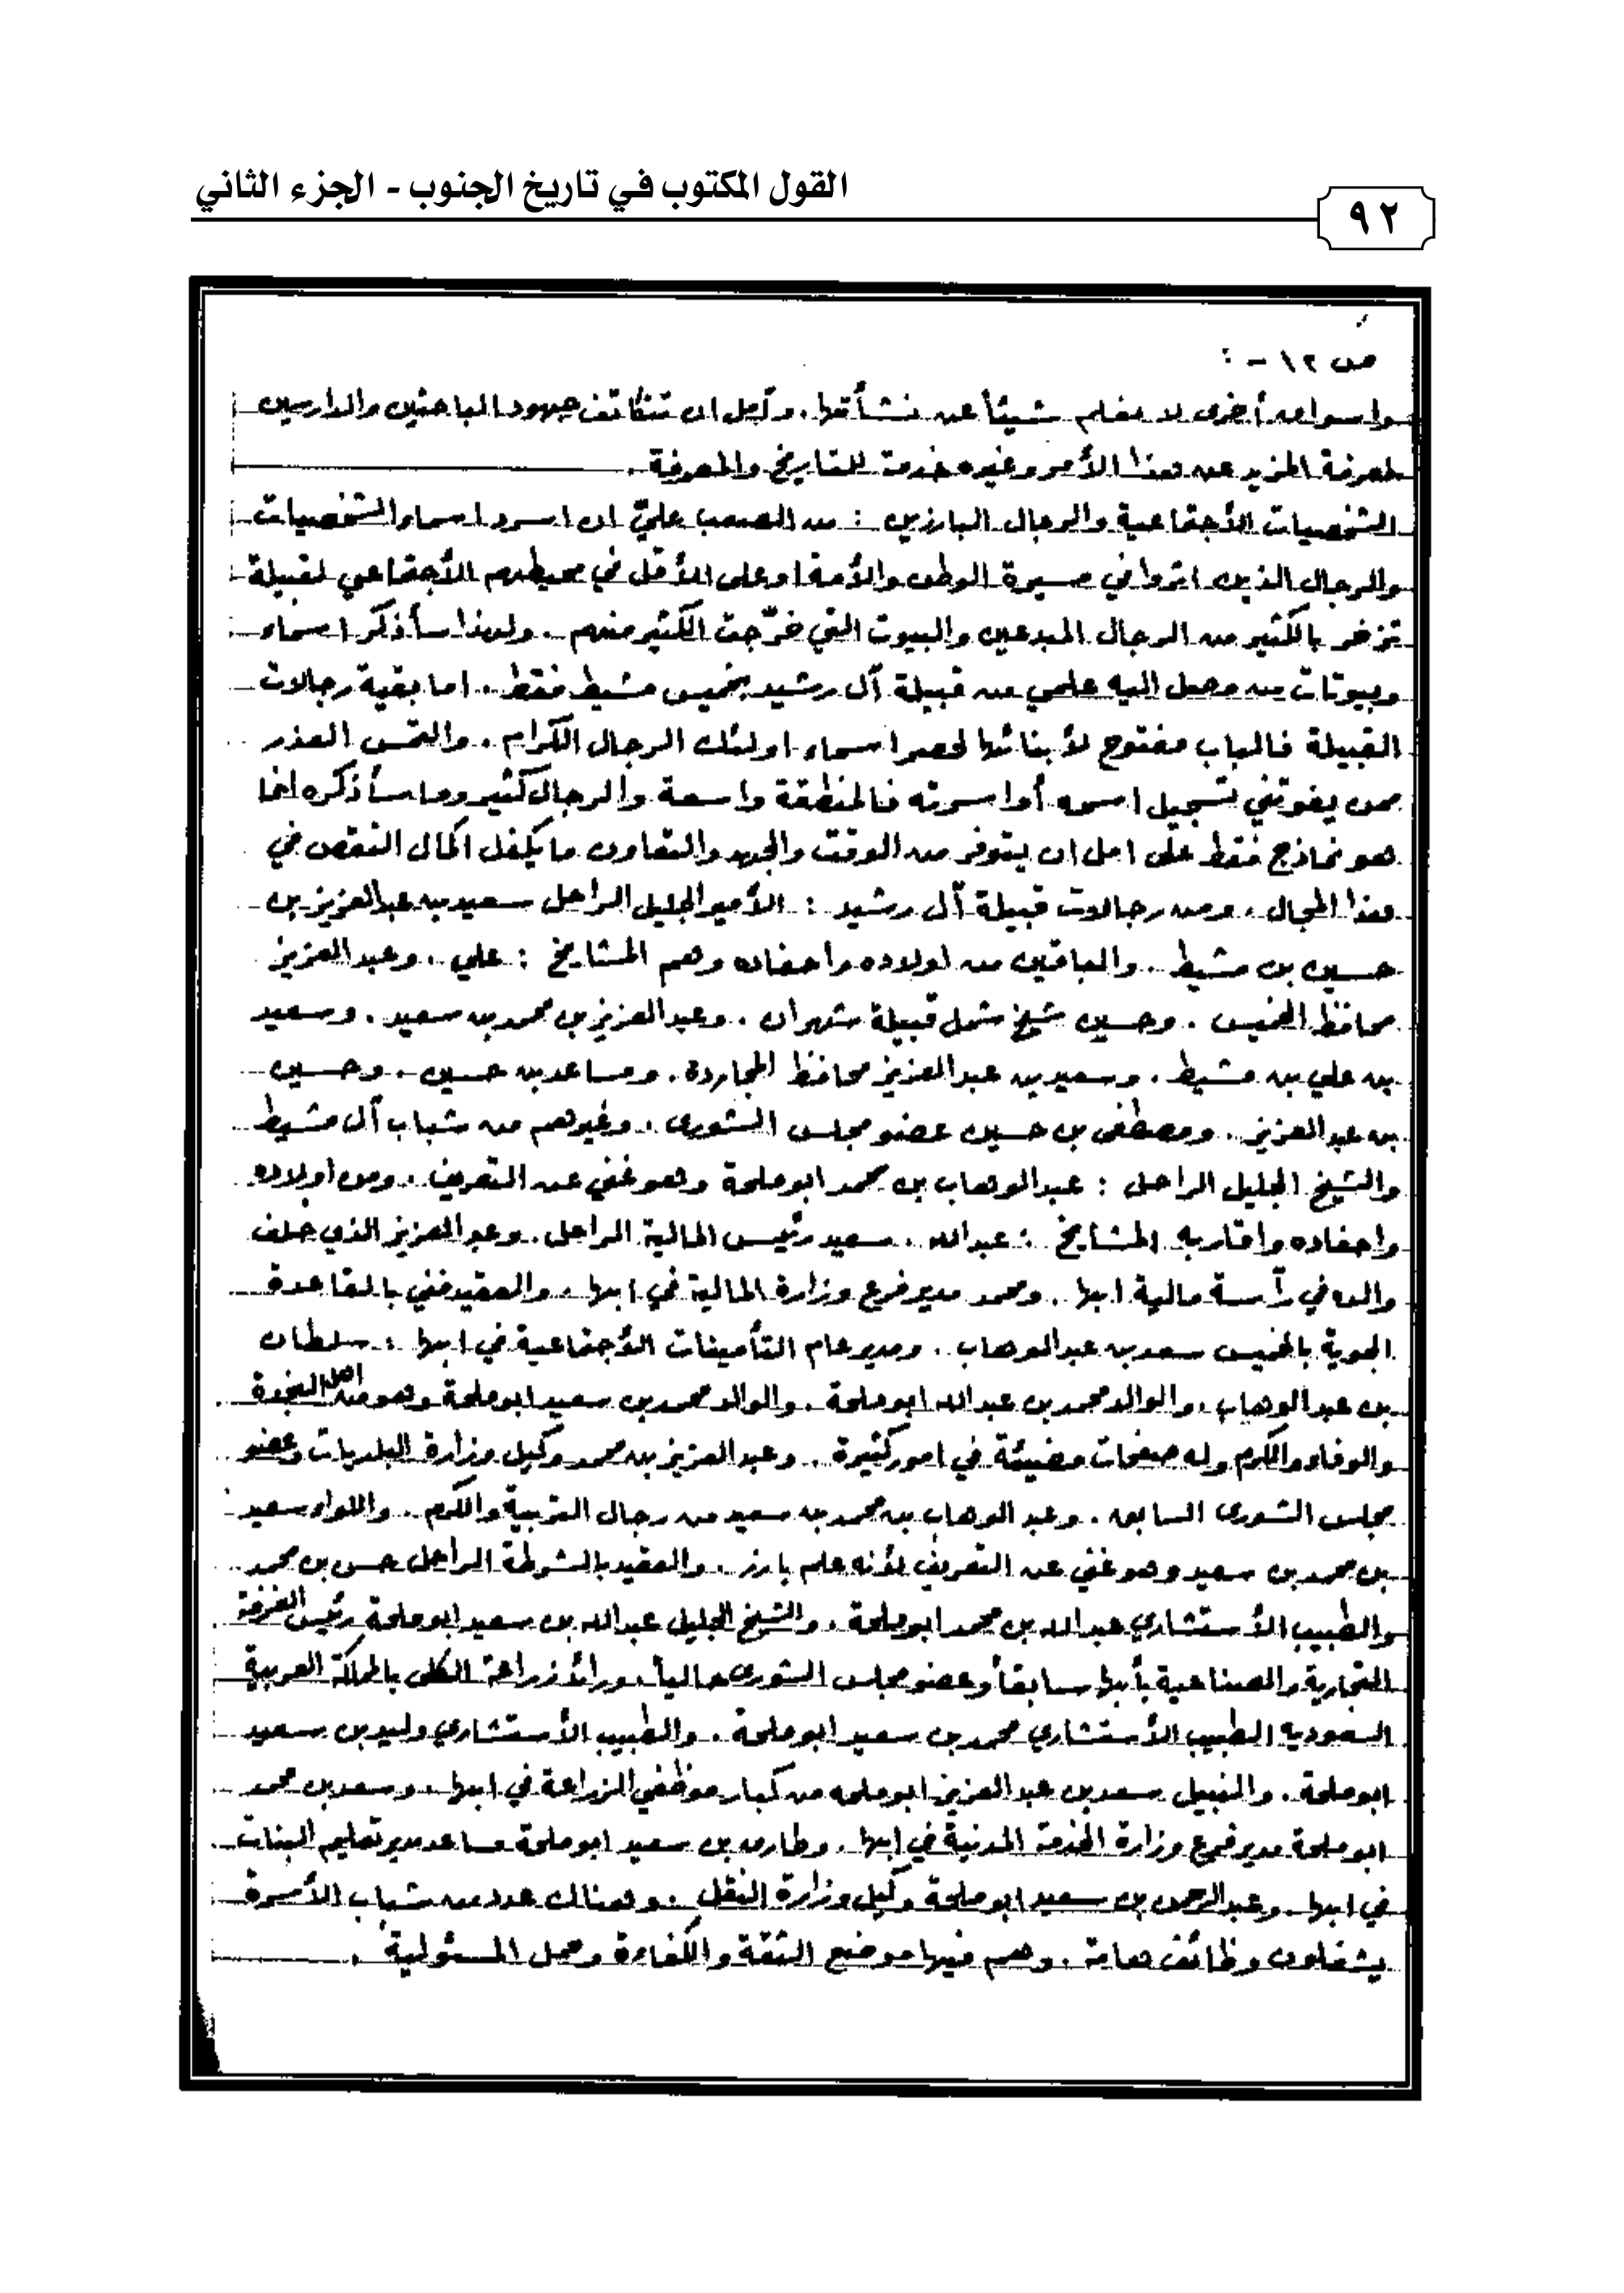 القول المكتوب في تاريخ الجنوب - الجزء الثاني
٩٢
ص ١٢ - :
واسواق أخرى لا نعلم شيئاً عن نشأتها . ونأمل ان تتكاتف جهود الباحثين والدارسين
لمعرفة المزيد عن هذا الأمر وغيره خدمة للتاريخ والمعرفة .
الشخصيات الأجتماعية والرجال البارزين : من الصعب عليّ ان اسرد اسماء الشخصيات
والرجال الذين اثروا في مسيرة الوطن والأمة او على الأقل في محيطهم الأجتماعي لقبيلة
تزخر بالكثير من الرجال المبدعين والبيوت التي خرّجت الكثير منهم . ولهذا سأذكر اسماء
وبيوتات من وصل اليه علمي من قبيلة آل رشيد بخميس مشيط فقط . اما بقية رجالات
القبيلة فالباب مفتوح لأبنائها لحصر اسماء اولئك الرجال الكرام . والتمس العذر
ممن يفوتني تسجيل اسمه أو اسرته فالمنطقة واسعة والرجال كثير وما سأذكره انما
هو نماذج فقط على امل ان يتوفر من الوقت والجهد والتعاون ما يكفل اكمال النقص في
هذا المجال . ومن رجالات قبيلة آل رشيد : الأمير الجليل الراحل سعيد بن عبدالعزيز بن
حسين بن مشيط . والباقين من اولاده واحفاده وهم المشايخ : علي . وعبدالعزيز
محافظ الخميس . وحسين شيخ شمل قبيلة شهران . وعبدالعزيز بن محمد بن سعيد . وسعيد
بن علي بن مشيط . وسعيد بن عبدالعزيز محافظ المجاردة . ومساعد بن حسين . وحسين
بن عبدالعزيز . ومصطفى بن حسين عضو مجلس الشورى . وغيرهم من شباب آل مشيط
والشيخ الجليل الراحل : عبدالوهاب بن محمد ابوملحة وهو غني عن التعريف . ومن اولاده
واحفاده واقاربه المشايخ : عبدالله . سعيد رئيس المالية الراحل . وعبدالعزيز الذي خلف
والده في رآسة مالية ابها . ومحمد مدير فرع وزارة المالية في ابها . والعقيد فني بالقاعدة
الجوية بالخميس سعد بن عبدالوهاب . ومدير عام التأمينات الأجتماعية في ابها : سلطان
بن عبدالوهاب . والوالد محمد بن عبدالله ابوملحة . والوالد محمد بن سعيد ابوملحة وهو من اهل النجدة
والوفاء والكرم وله صفحات مضيئة في امور كثيرة . وعبدالعزيز بن محمد وكيل وزارة البلديات وعضو
مجلس الشورى السابق . وعبدالوهاب بن محمد بن سعيد من رجال التربية والكرم . واللواء سعيد
بن محمد بن سعيد وهو غني عن التعريف لأنه علم بارز . والعقيد بالشرطة الراحل حسن بن محمد
والطبيب الأستشاري عبدالله بن محمد ابوملحة . والشيخ الجليل عبدالله بن سعيد ابوملحة رئيس الغرفة
التجارية والصناعية بأبها سابقاً وعضو مجلس الشورى حالياً . ورائد زراعة الكلى بالمملكة العربية
السعودية الطبيب الأستشاري محمد بن سعيد ابوملحة . والطبيب الأستشاري وليد بن سعيد
ابوملحة . والنبيل سعد بن عبدالعزيز ابوملحه من كبار موظفي الزراعة في ابها . وسعد بن محمد
ابوملحة مدير فرع وزارة الخدمة المدنية في ابها . وطارق بن سعيد ابوملحة مساعد مدير تعليم البنات
في ابها . وعبدالرحمن بن سعيد ابوملحة وكيل وزارة النقل . وهنالك عدد من شباب الأسرة
يشغلون وظائف هامة . وهم فيها موضع الثقة والكفاءة وحمل المسئولية .